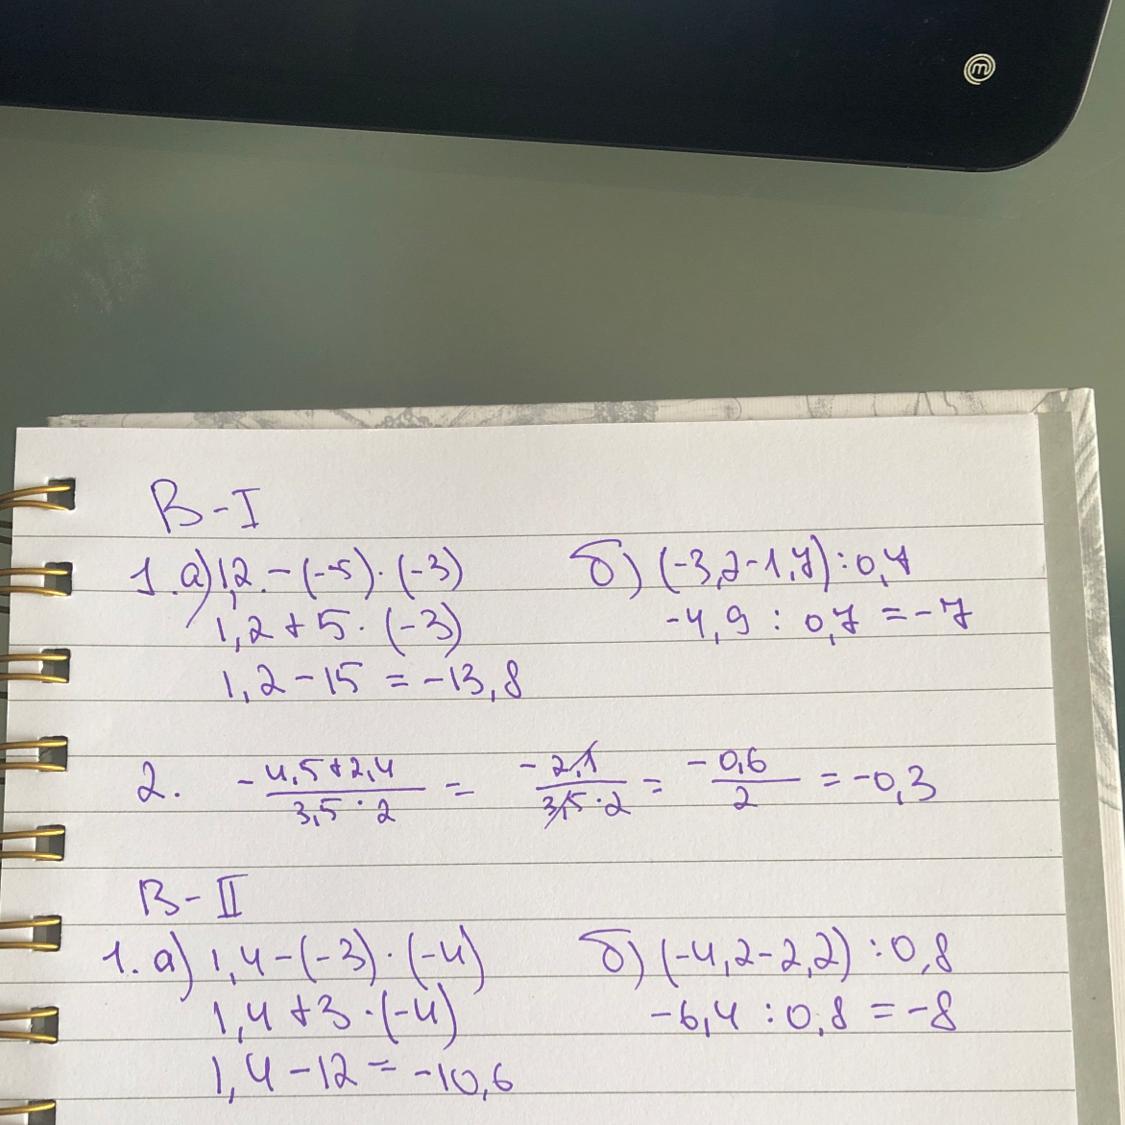 B-I
1. а) 1,2 - (-5) · (-3)
1,2 + 5 · (-3)
1,2 - 15 = -13,8
б) (-3,2-1,7) : 0,7
-4,9 : 0,7 = -7
2. -4,5+2,4 / 3,5 · 2 = -2,1 / 3,5 · 2 = -0,6 / 2 = -0,3
B-II
1. а) 1,4 - (-3) · (-4)
1,4 + 3 · (-4)
1,4 - 12 = -10,6
б) (-4,2-2,2) : 0,8
-6,4 : 0,8 = -8